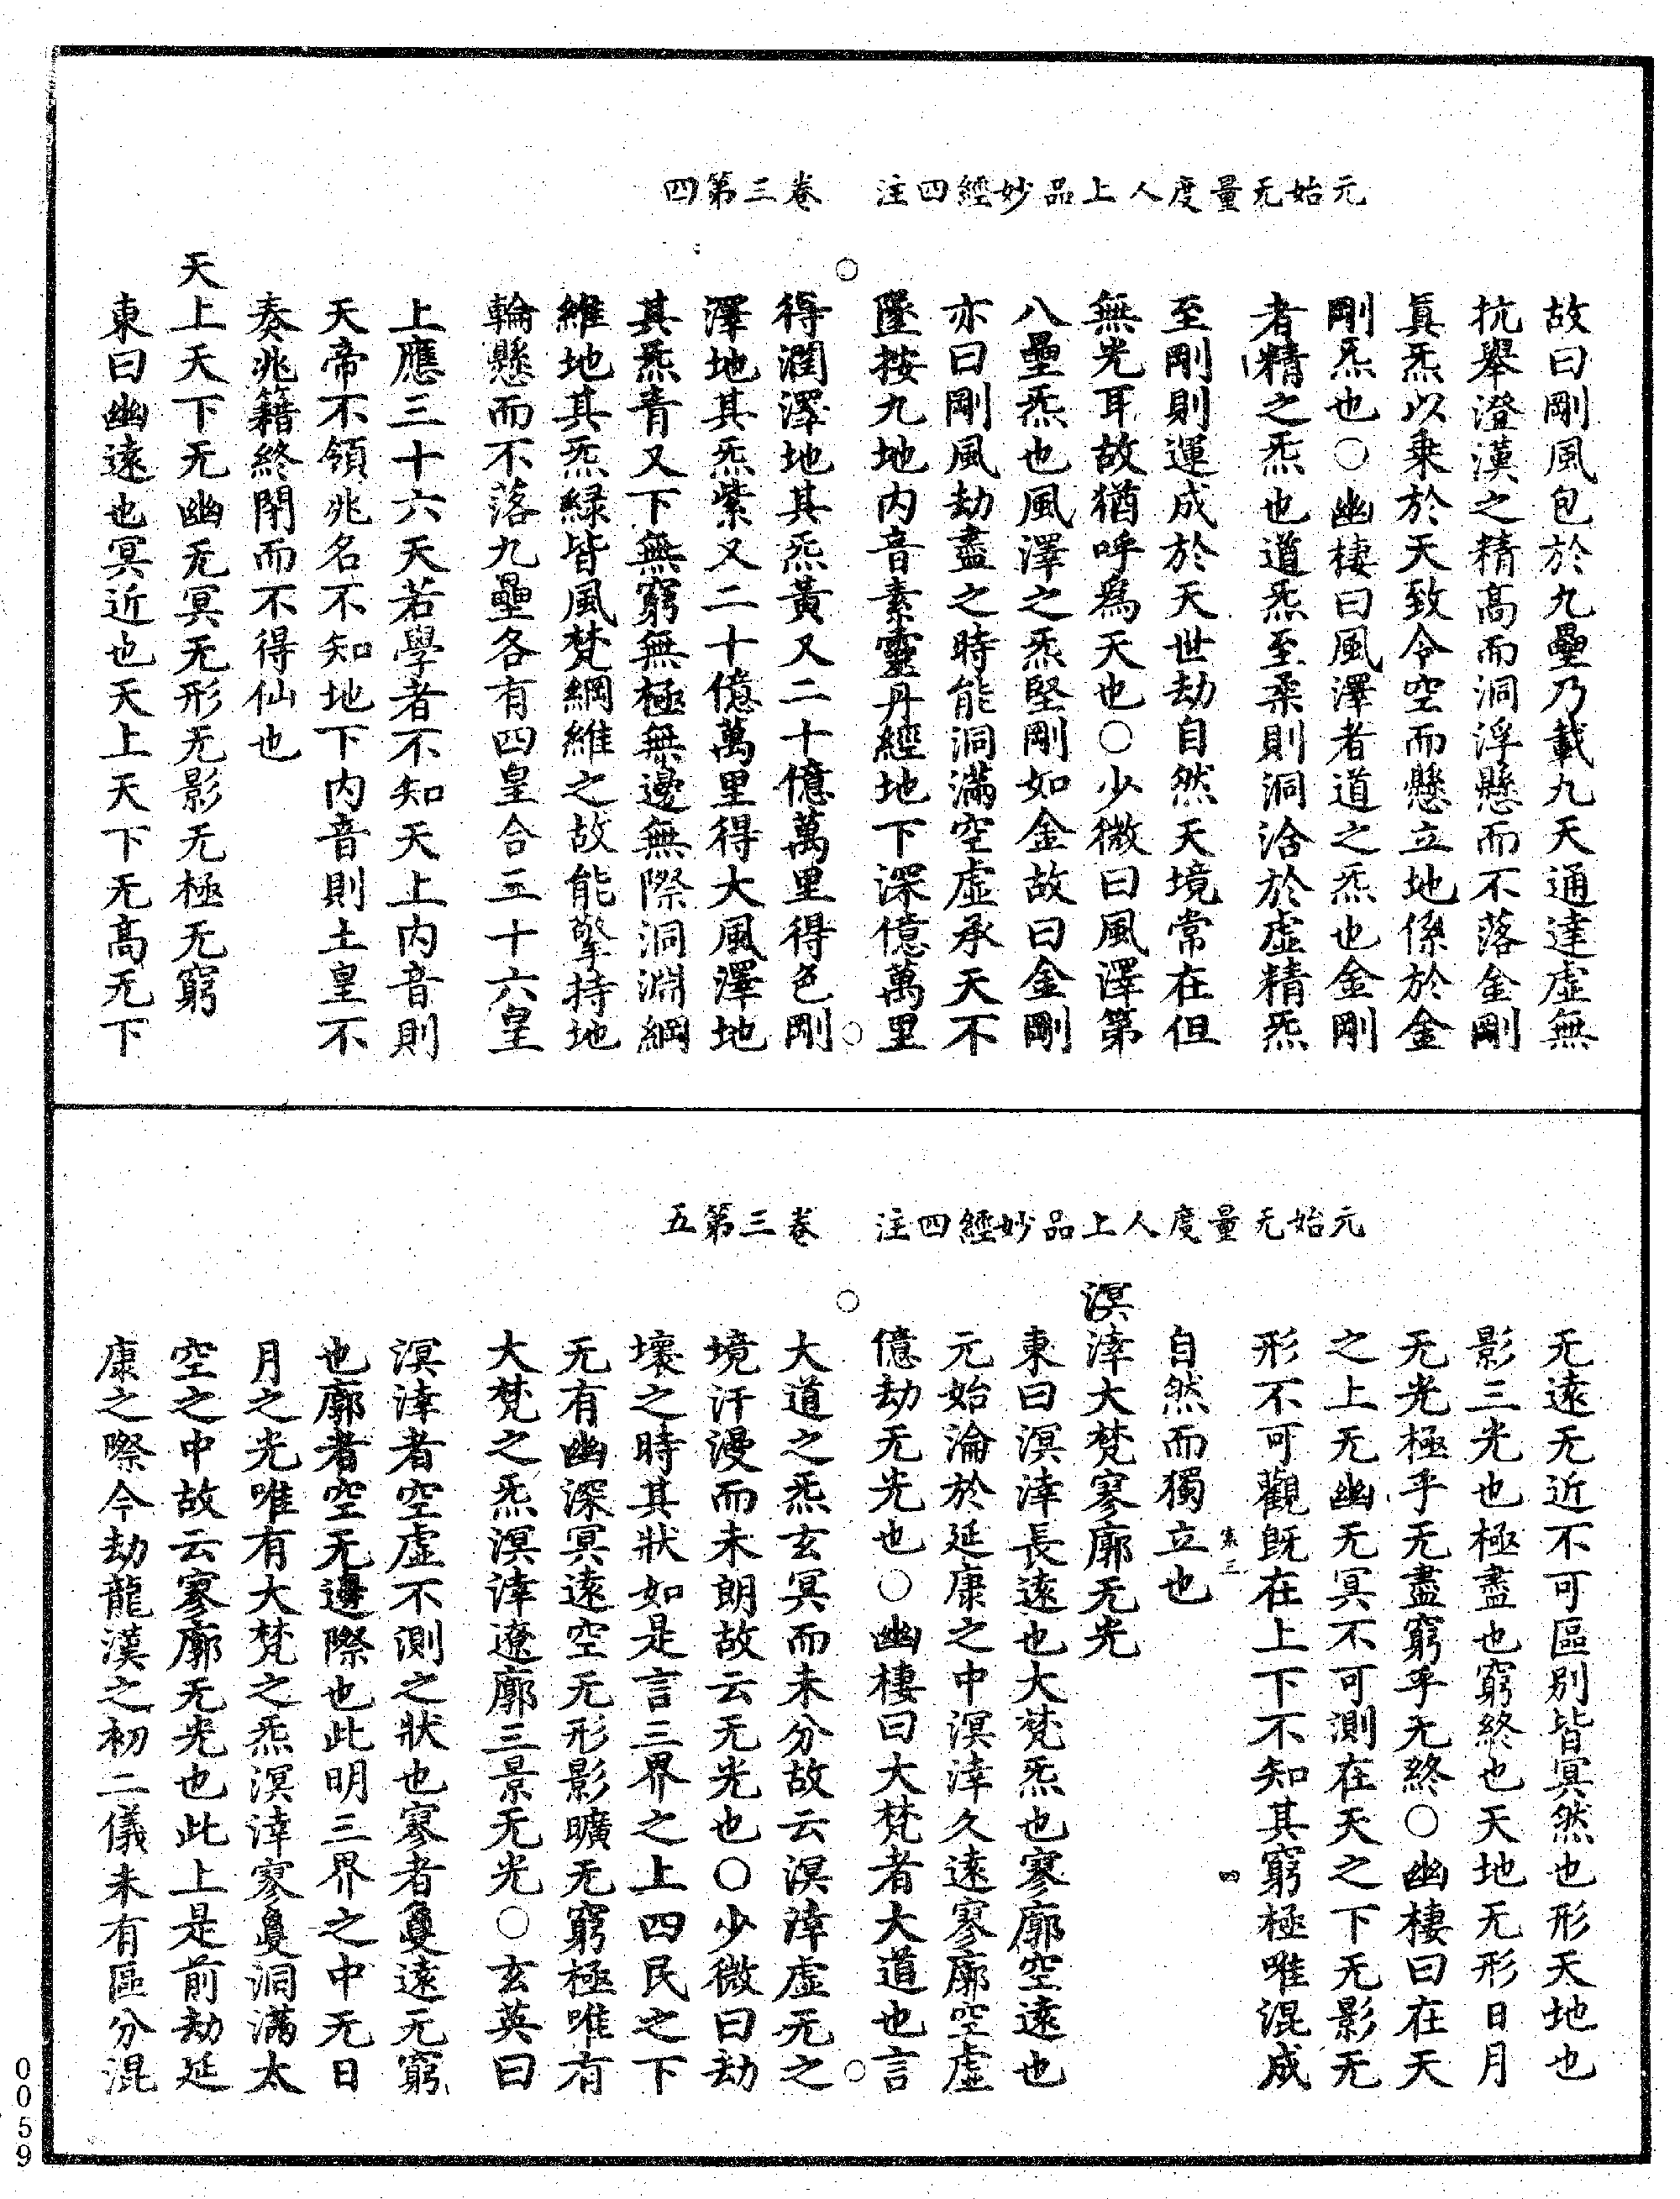 元始无量度人上品妙經四注　卷三第四
故曰剛風包於九壘乃載九天通達虛無
抗舉澄漢之精高而洞浮懸而不落金剛
真炁以乗於天致令空而懸立地係於金
剛炁也○幽棲曰風澤者道之炁也金剛
者精之炁也道炁至柔則洞洽於虛精炁
至剛則運成於天世劫自然天境常在但
無光耳故猶呼爲天也○少微曰風澤第
八壘炁也風澤之炁堅剛如金故曰金剛
亦曰剛風劫盡之時能洞滿空虛承天不
墜按九地内音素靈丹經地下深億萬里
得潤澤地其炁黃又二十億萬里得色剛
澤地其炁紫又二十億萬里得大風澤地
其炁青又下無窮無極無邊無際洞淵綱
維地其炁緑皆風梵綱維之故能擎持地
輪懸而不落九壘各有四皇合三十六皇
上應三十六天若學者不知天上内音則
天帝不領兆名不知地下内音則土皇不
奏兆籍終閉而不得仙也
天上天下无幽无冥无形无影无極无窮
東曰幽遠也冥近也天上天下无高无下
元始无量度人上品妙經四注　卷三第五
无遠无近不可區别皆冥然也形天地也
影三光也極盡也窮終也天地无形日月
无光極乎无盡窮乎无終○幽棲曰在天
之上无幽无冥不可測在天之下无影无
形不可觀旣在上下不知其窮極唯混成
寒三　四
自然而獨立也
溟涬大梵寥廓无光
東曰溟涬長遠也大梵炁也寥廓空遠也
元始淪於延康之中溟涬久遠寥廓空虛
億劫无光也○幽棲曰大梵者大道也言
大道之炁玄冥而未分故云溟涬虛无之
境汗漫而未朗故云无光也○少微曰劫
壞之時其狀如是言三界之上四民之下
无有幽深冥遠空无形影曠无窮極唯有
大梵之炁溟涬遼廓三景无光○玄英曰
溟涬者空虛不測之狀也寥者夐遠无窮
也廓者空无邊際也此明三界之中无日
月之光唯有大梵之炁溟涬寥夐洞滿太
空之中故云寥廓无光也此上是前劫延
康之際今劫龍漢之初二儀未有區分混
0059